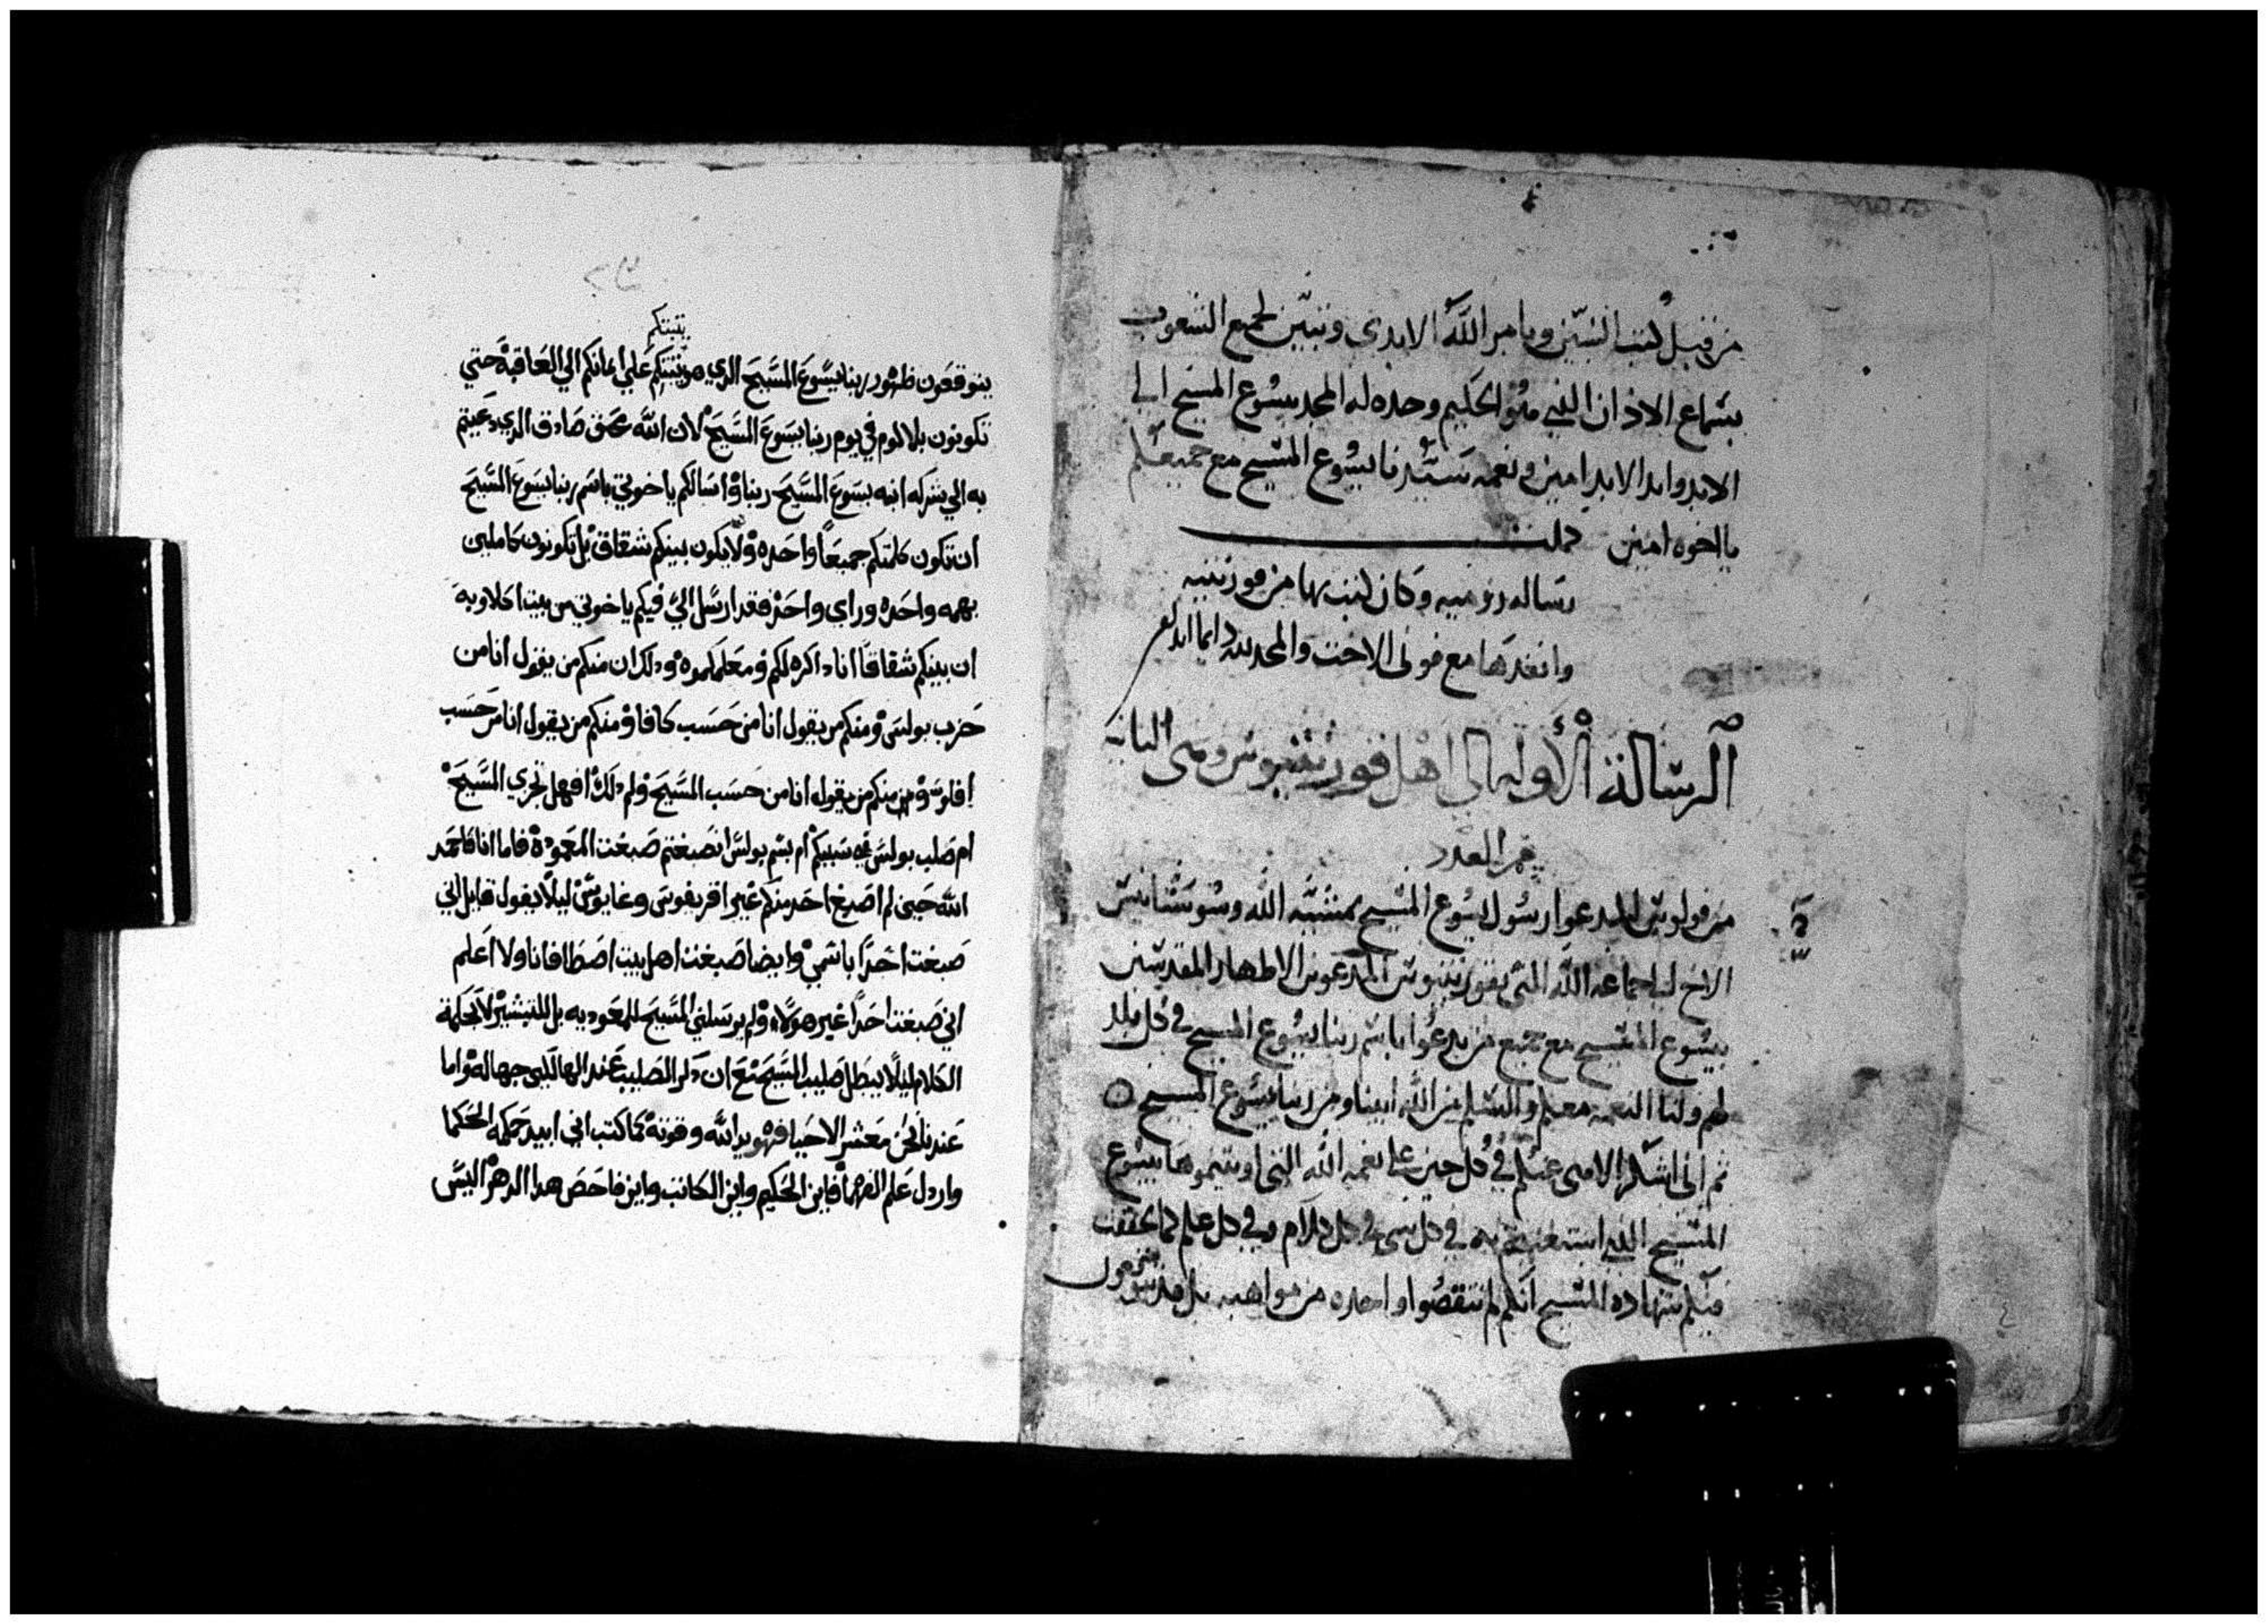 من قبل كتب النبيين وبامر الله الابدى وتبين لجميع الشعوب
بسماع الاذان الذي هو الحكيم وحده له المجد بيسوع المسيح الى
الابد وابد الابد امين ونعمه سيدنا يسوع المسيح مع جميعكم
يا اخوه امين كملت
رساله روميه وكان كتب بها من قورنثيه
وانفدها مع فوني الاخت والمجد لله دايما ابدا
الرسالة الأوله الي اهل قورنثيوس وهى الثانيه
من العدد
من فولوس المدعوا رسول يسوع المسيح بمشيه الله وسوستانيس
الاخ الى جماعه الله التى بقورنثيوس المدعوين الاطهار المقدسين
بيسوع المسيح مع جميع من يدعوا باسم ربنا يسوع المسيح في كل بلد
لهم ولنا النعمه معكم والسلم من الله ابينا ومن ربنا يسوع المسيح
ثم اني اشكر الاهى عنكم في كل حين على نعمه الله التى اوتيتموها بيسوع
المسيح الذي استغنيتم به في كل شى في كل كلام وفي كل علم كما تحققت
فيكم شهاده المسيح انكم لم تنقصوا واحده من مواهبه بل
٤
يثبتكم
يتوقعون ظهور ربنا يسوع المسيح الدي هو يثبتكم علي ايمانكم الي العاقبة حتي
تكونون بلا لوم في يوم ربنا يسوع المسيح لان الله محق صادق الدي دعيتم
به الي شركه ابنه يسوع المسيح ربنا واسالكم ياخوتي باسم ربنا يسوع المسيح
ان تكون كلمتكم جميعا واحده ولا يكون بينكم شقاق بل تكونون كاملين
بهمه واحده وراي واحد فقد ارسل الي فيكم ياخوتي من بيت اكلاويه
ان بينكم شقاقا انا داكره لكم ومعلمكموه ودلك ان منكم من يقول انا من
حزب بولس ومنكم من يقول انا من حسب كافا ومنكم من يقول انا من حسب
افلوس ومنكم من يقول انا من حسب المسيح ولم دلك افهل تجزي المسيح
ام صلب بولس في سببكم ام بسم بولس انصبغتم صبغت المعمودة فاما انا فاحمد
الله حين لم اصبغ احد منكم غير اقريفوس وغايوس ليلا يقول قايل اني
صبغت احدا باسمي وايضا صبغت اهل بيت اصطافانا ولا اعلم
اني صبغت احدا غير هولاء ولم يرسلني المسيح للمعموديه بل للتبشير لا بحكمة
الكلام ليلا يبطل صليب المسيح مع ان دكر الصليب عند الهالكين جهالة واما
عندنا نحن معشر الاحيا فهو يد الله وقوته كما كتب اني ابيد حكمه الحكما
واردل علم الفهما فاين الحكيم واين الكاتب واين فاحص هدا الدهر اليس